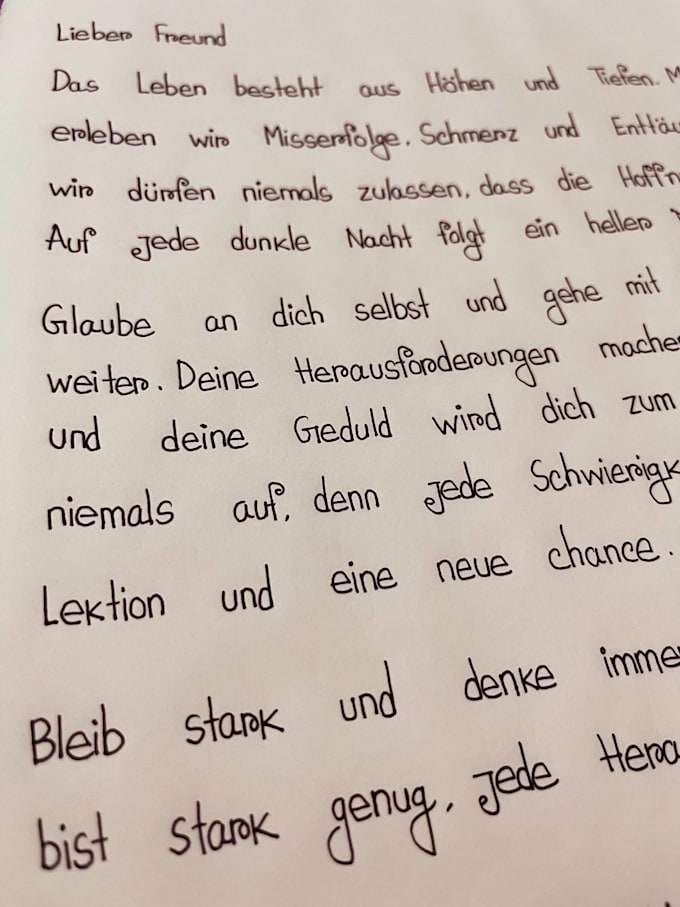 Lieber Freund
Das Leben besteht aus Höhen und Tiefen. M
erleben wir Misserfolge. Schmerz und Enttäu
wir dürfen niemals zulassen, dass die Hoffn
Auf jede dunkle Nacht folgt ein heller
Glaube an dich selbst und gehe mit
weiter. Deine Herausforderungen mache
und deine Geduld wird dich zum
niemals auf, denn jede Schwierigk
Lektion und eine neue chance.
Bleib stark und denke imme
bist stark genug, jede Hera